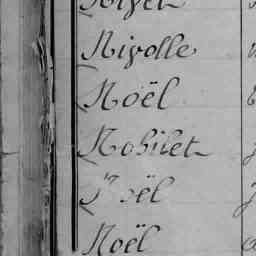 Nivolle
Noël
Nobilet
Noël
Noël